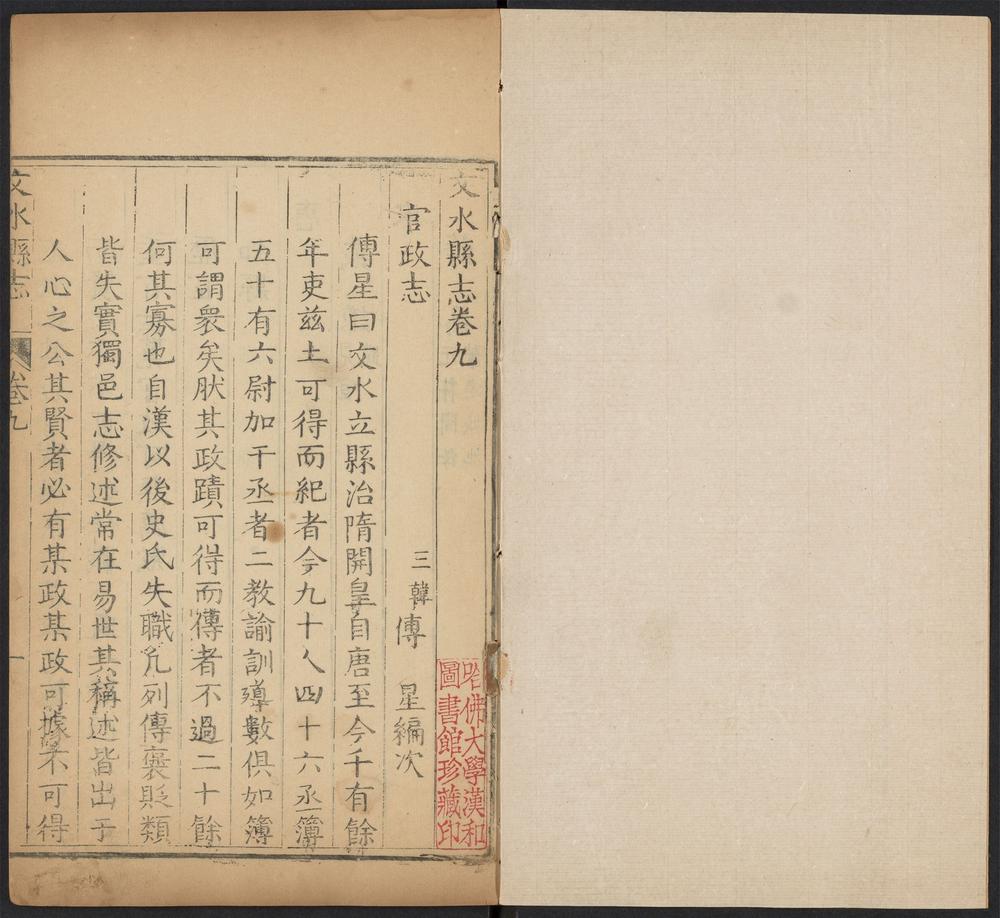 文水縣志卷九
官政志
三韓傅 星編次
傅星曰文水立縣治隋開皇自唐至今千有餘
年吏茲土可得而紀者令九十人四十六丞簿
五十有六尉加于丞者二教諭訓導數俱如簿
可謂衆矣肰其政蹟可得而傳者不過二十餘
何其寡也自漢以後史氏失職凢列傳褒貶類
皆失實獨邑志修述常在易世其稱述皆出于
人心之公其賢者必有某政某政可據不可得
文水縣志 卷九 一
哈佛大學漢和
圖書館珍藏印